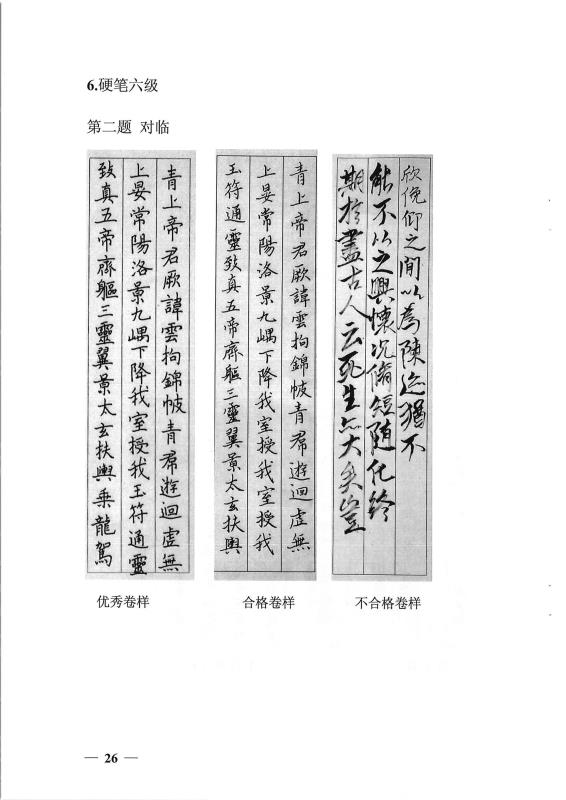 6.硬笔六级
第二题 对临
青上帝君厥諱雲拘錦帔青帬遊迴虛無
上晏常陽洛景九嵎下降我室授我玉符通靈
致真五帝齊軀三靈翼景太玄扶輿乗龍駕
青上帝君厥諱雲拘錦帔青帬遊迴虛無
上晏常陽洛景九嵎下降我室授我
玉符通靈致真五帝齊軀三靈翼景太玄扶輿
欣俛仰之間以為陳迹猶不
能不以之興懷况脩短随化終
期於盡古人云死生亦大矣豈
优秀卷样
合格卷样
不合格卷样
— 26 —